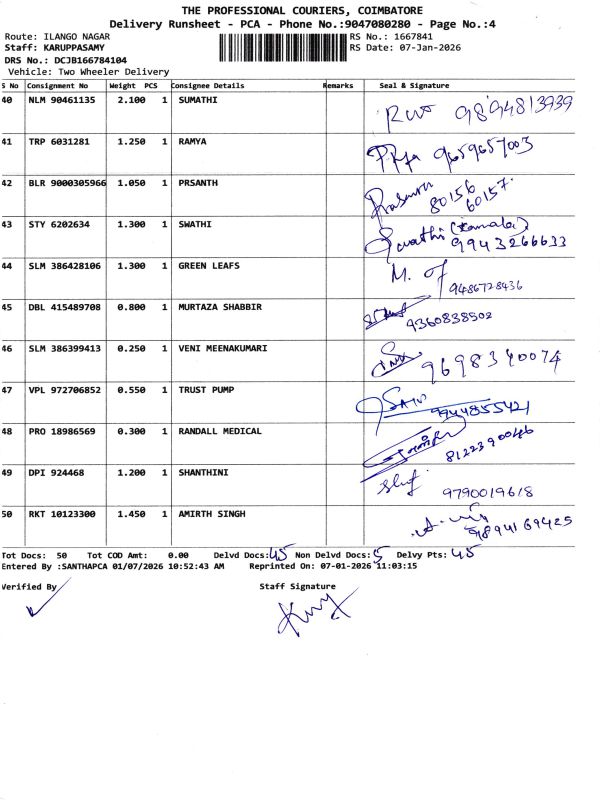 THE PROFESSIONAL COURIERS, COIMBATORE
Delivery Runsheet - PCA - Phone No.:9047080280 - Page No.:4
Route: ILANGO NAGAR RS No.: 1667841
Staff: KARUPPASAMY RS Date: 07-Jan-2026
DRS No.: DCJB166784104
Vehicle: Two Wheeler Delivery
S No Consignment No Weight PCS Consignee Details Remarks Seal & Signature
40 NLM 90461135 2.100 1 SUMATHI 9894813939
41 TRP 6031281 1.250 1 RAMYA 9659657003
42 BLR 9000305966 1.050 1 PRSANTH Prasanth 80156
60157
43 STY 6202634 1.300 1 SWATHI Swathi (Kamala)
9943266633
44 SLM 386428106 1.300 1 GREEN LEAFS
9486728436
45 DBL 415489708 0.800 1 MURTAZA SHABBIR 9360838502
46 SLM 386399413 0.250 1 VENI MEENAKUMARI 9698340074
47 VPL 972706852 0.550 1 TRUST PUMP 9944855421
48 PRO 18986569 0.300 1 RANDALL MEDICAL 8122390046
49 DPI 924468 1.200 1 SHANTHINI
9790019618
50 RKT 10123300 1.450 1 AMIRTH SINGH 9894169425
Tot Docs: 50 Tot COD Amt: 0.00 Delvd Docs: 45 Non Delvd Docs: 5 Delvy Pts: 45
Entered By :SANTHAPCA 01/07/2026 10:52:43 AM Reprinted On: 07-01-2026 11:03:15
Verified By Staff Signature